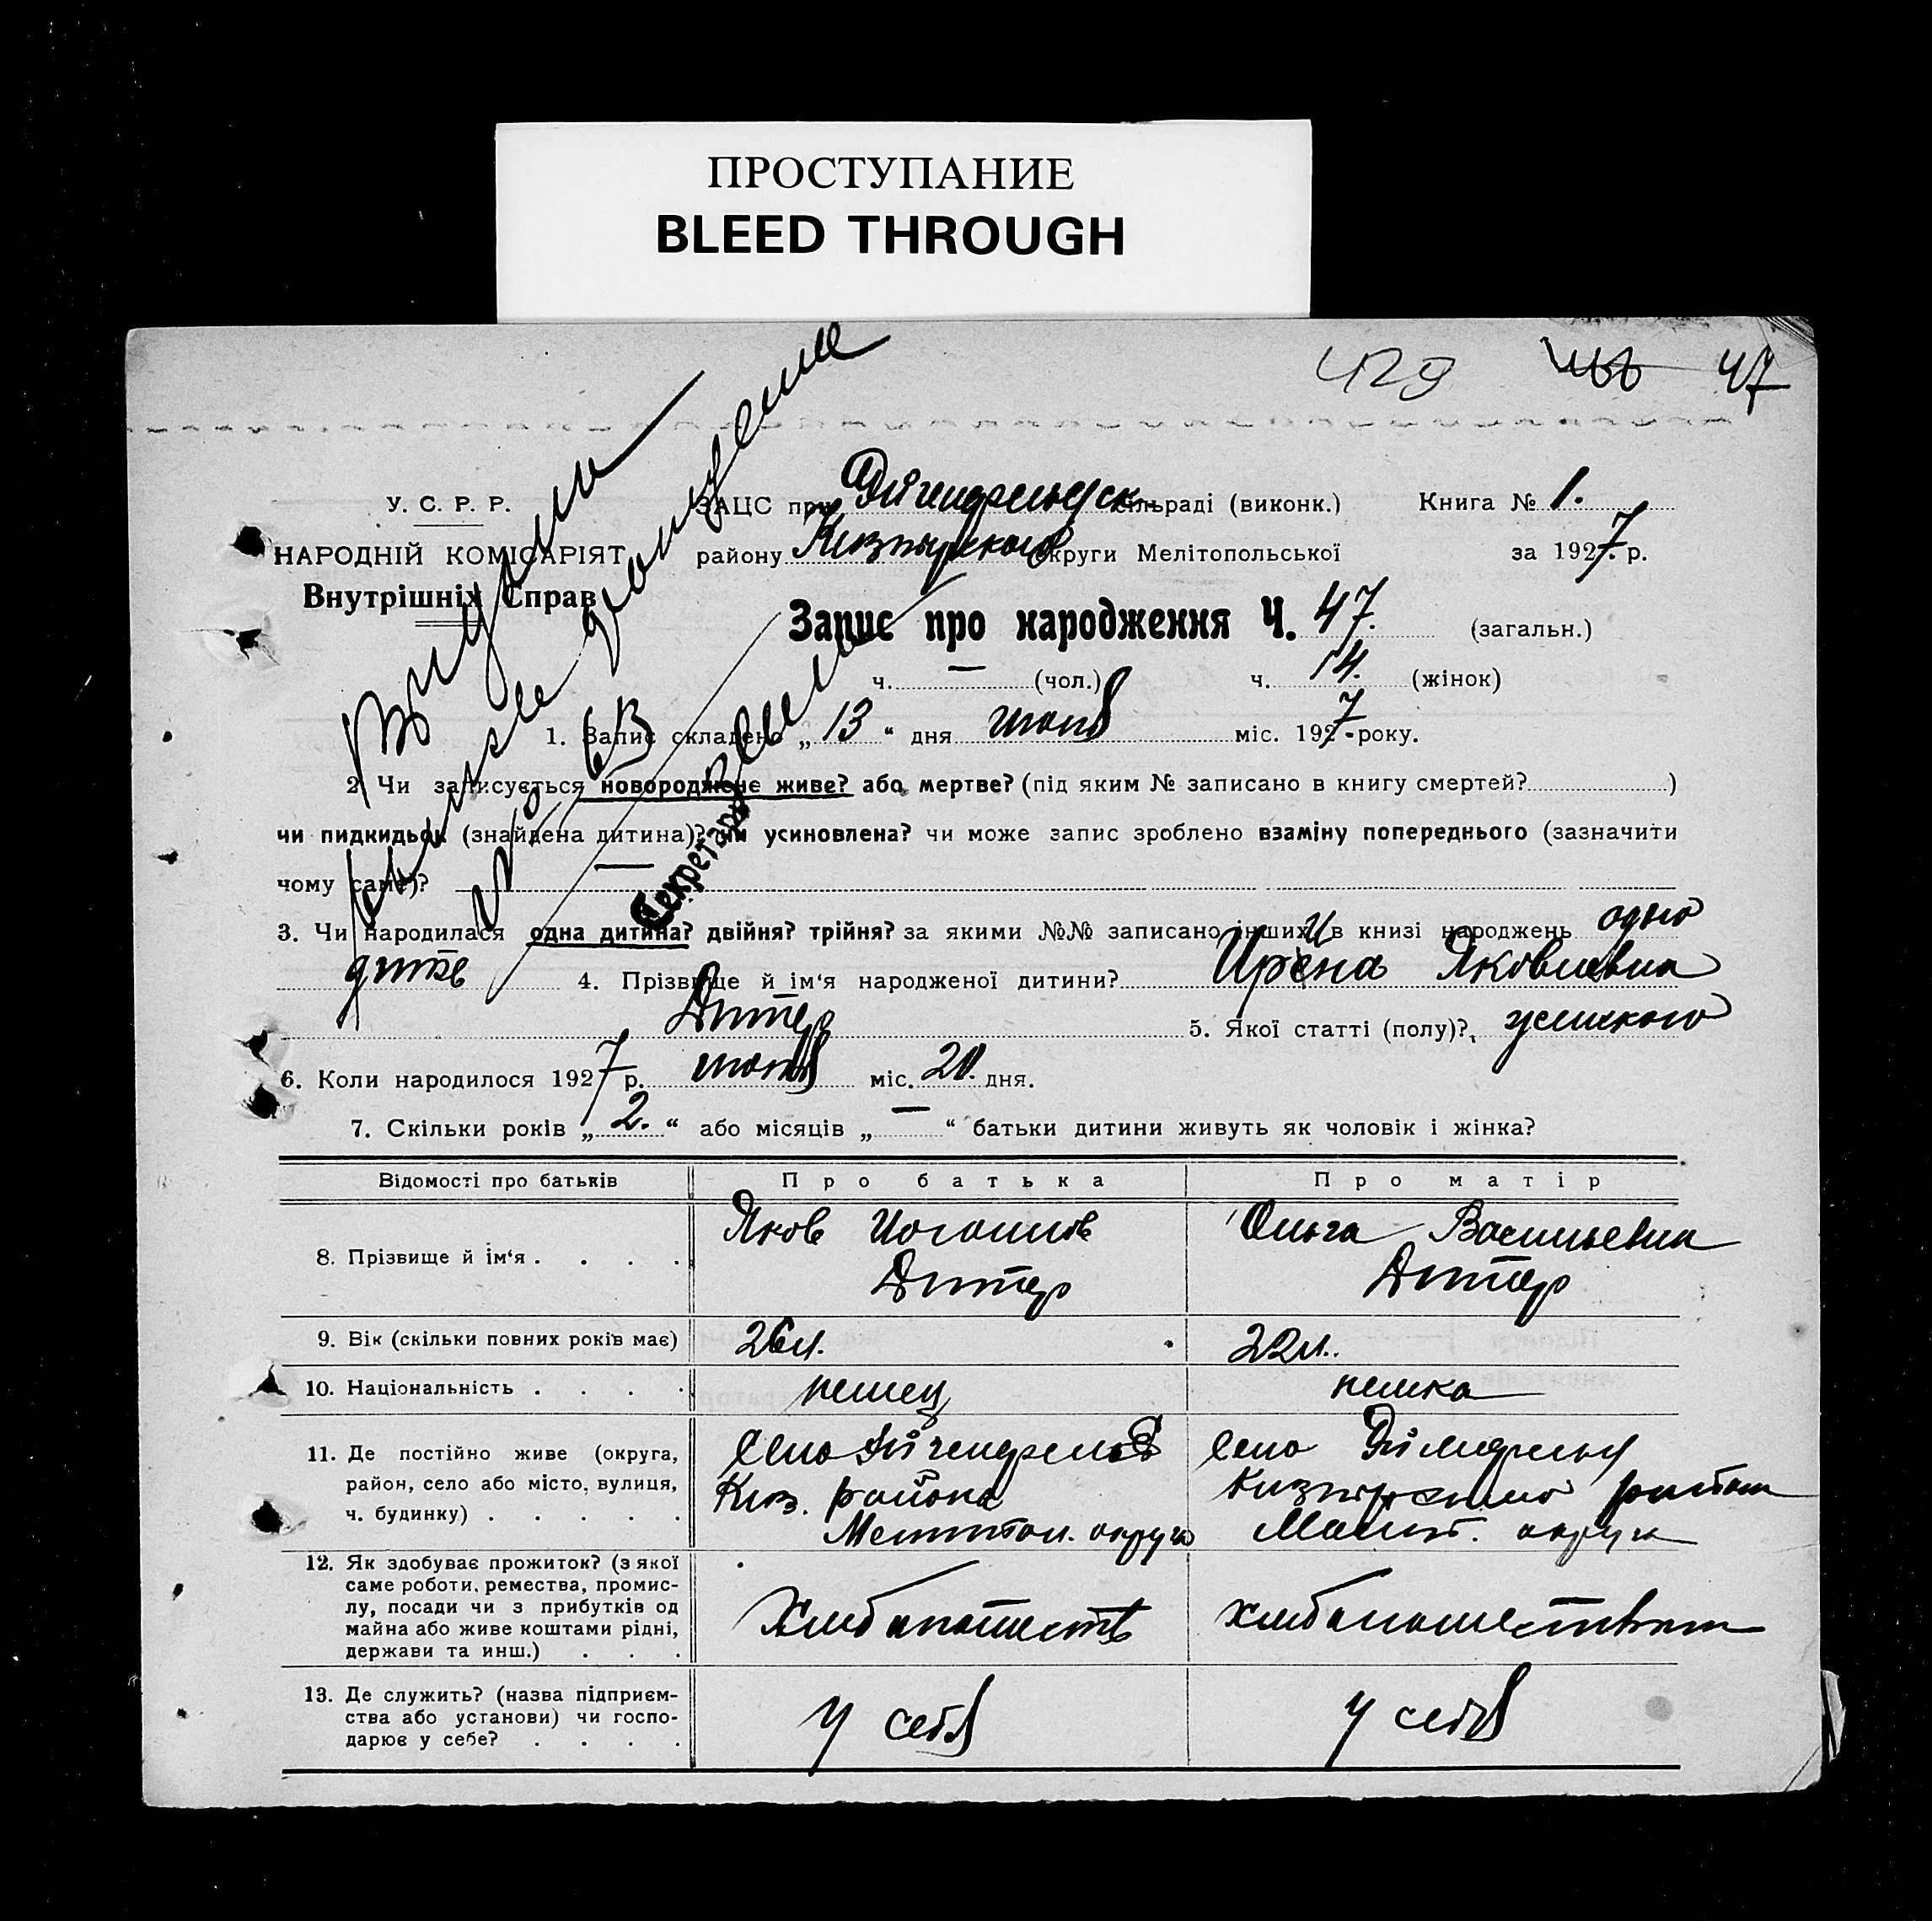 ПРОСТУПАНИЕ
BLEED THROUGH
429 47
У. С. Р. Р.
НАРОДНІЙ КОМІСАРІЯТ
Внутрішніх Справ
ЗАЦС при сільраді (виконк.) Книга № 1.
району округи Мелітопольської за 1927 р.
Запис про народження Ч. 47. (загальн.)
ч. — (чол.) ч. 14. (жінок)
Выдано
Секретарь
1. Запис складено „ 13 “ дня міс. 1927 року.
2. Чи записується новороджене живе? або мертве? (під яким № записано в книгу смертей? )
чи пидкидьок (знайдена дитина)? чи усиновлена? чи може запис зроблено взаміну попереднього (зазначити
чому саме)? —
3. Чи народилася одна дитина? двійня? трійня? за якими №№ записано інших в книзі народжень одно
дитя 4. Прізвище й ім‘я народженої дитини? Ирена Яковлевна
Дитер 5. Якої статті (полу)? женского
6. Коли народилося 1927 р. міс. дня.
7. Скільки років „ 2. “ або місяців „ — “ батьки дитини живуть як чоловік і жінка?
Відомості про батьків Про батька Про матір
8. Прізвище й ім‘я . . . . Яков Иоганнов Ольга Васильевна
Дитер Дитер
9. Вік (скільки повних років має) 26 л. 22 л.
10. Національність . . . . немец немка
11. Де постійно живе (округа, Село село
район, село або місто, вулиця, района района
ч. будинку) . . . . . Мелитоп. округа Мелит. округа
12. Як здобуває прожиток? (з якої
саме роботи, ремества, промис-
лу, посади чи з прибутків од хлебопашеств хлебопашеством
майна або живе коштами рідні,
держави та инш.) . . .
13. Де служить? (назва підприєм-
ства або установи) чи госпо- у себя у себя
дарює у себе? . . . .